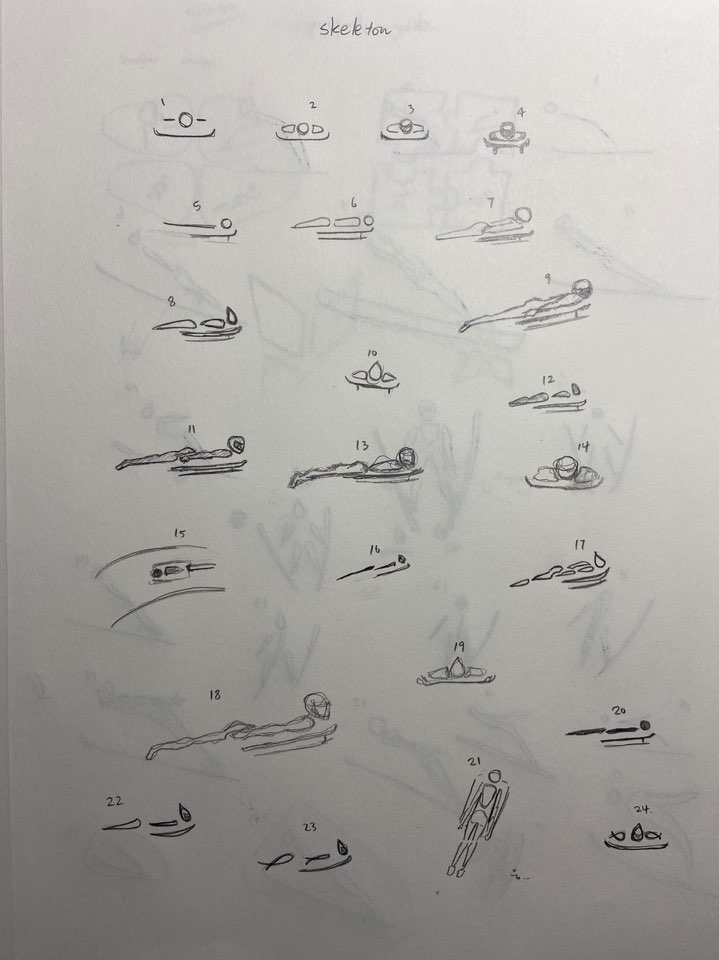 skeleton
1
2
3
4
5
6
7
8
9
10
11
12
13
14
15
16
17
18
19
20
21
22
23
24.